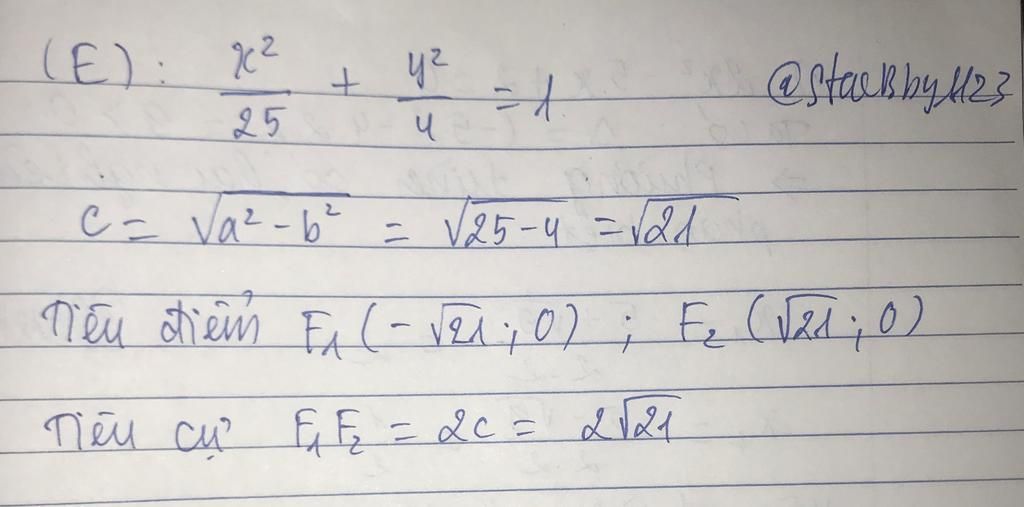 (E): x²/25 + y²/4 = 1 @StaBbby1123
c = √(a² - b²) = √(25-4) = √21
Tiêu điểm F₁(-√21;0) ; F₂(√21;0)
Tiêu cự F₁F₂ = 2c = 2√21